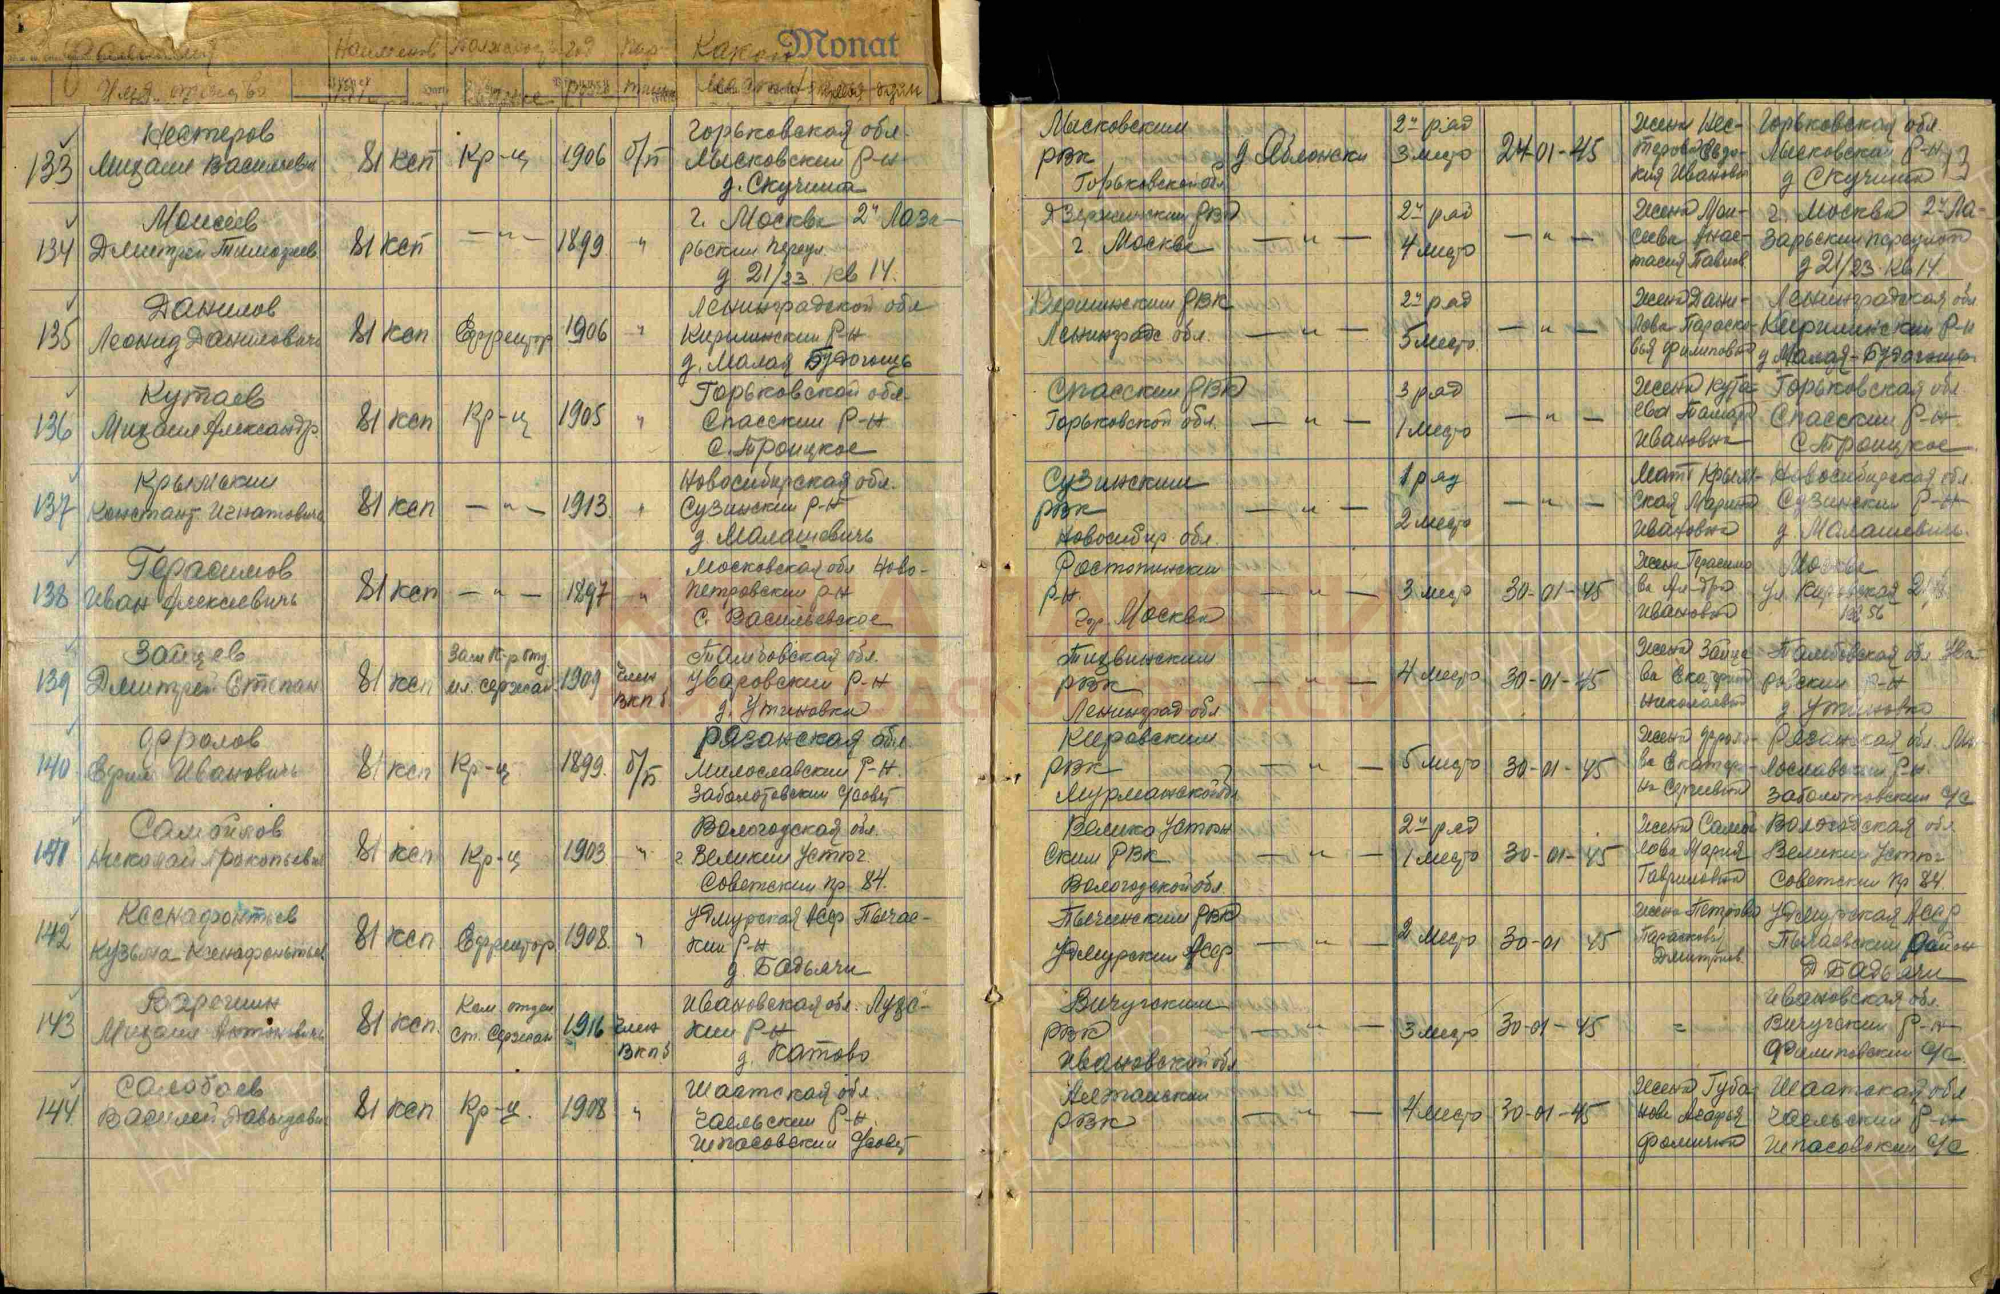 Фамилия Наименов Должность год пар- Какой Monat
Имя отчество части звание рожд тийн местности
133 Нестеров Михаил Васильевич 81 ксп Кр-ц 1906 б/п Горьковская обл.
Лысковский р-н
д. Скучиха
Лысковским
РВК
Горьковской обл.
д Яблонски
2й ряд
3 место
24-01-45
Жена Нес-
терова Евдо-
кия Ивановн
Горьковская обл
Лысковский р-н
д Скучиха
13
134 Моисеев Дмитрий Тимофеев. 81 ксп — " — 1899 "
г. Москва 2й Лаза-
рьский переул.
д 21/23 кв 14.
Дзержинским РВК
г. Москва
— " —
2й ряд
4 место
— " —
Жена Мои-
сеева Анас-
тасия Павлов.
г. Москва 2й Ла-
зарьский переулок
д 21/23 кв 14
135 Данилов Леонид Данилович 81 ксп Ефрейтор 1906 "
Ленинградской обл
Киришинский р-н
д. Малая Будогощь
Киришинским РВК
Ленинградс обл.
— " —
2й ряд
5 место
— " —
Жена Дани-
лова Параско-
вья Филиповна
Ленинградская обл
Киришинский р-н
д Малая-Будогощь
136 Кутаев Михаил Александр. 81 ксп Кр-ц 1905 "
Горьковской обл.
Спасский р-н
с. Троицкое
Спасским РВК
Горьковской обл.
— " —
3 ряд
1 место
— " —
Жена Кута-
ева Тамара
Ивановна
Горьковская обл.
Спасский р-н.
с Троицкое
137 Крымский Констант Игнатович 81 ксп — " — 1913. "
Новосибирская обл.
Сузинский р-н
д. Малашевичь
Сузинским
РВК
Новосибир. обл.
— " —
1 ряд
2 место
— " —
Мать Крым-
ская Марина
Ивановна
Новосибирская обл.
Сузинский р-н
д. Малашевичь.
138 Герасимов Иван Алексеевичь 81 ксп — " — 1897 "
Московская обл Ново-
петровский р-н
с. Васильевское
Ростопинский
р-н.
гор. Москва
— " —
3 место
30-01-45
Жена Герасимо
ва Ал-дра
Ивановна
Москва
ул Кировская
кв 56
139 Зайцев Дмитрий Степан 81 ксп Зам к-р отд. мл. сержан 1909 член ВКПб
Тамбовская обл.
Уваровский р-н
д. Уткиновка
Тихвинским
РВК
Ленинград обл
— " —
4 место
30-01-45
Жена Зайце
ва Екатерин
Николаевна
Тамбовская обл Ува-
ровский р-н
д Уткиновка
140 Фролов Ефим Ивановичь 81 ксп Кр-ц 1899. б/п
Рязанская обл.
Милославский р-н.
Заболотовский с/совет
Кировским
РВК
Мурманской обл
— " —
5 место
30-01-45
Жена Фроло-
ва Екатер-
на Сергеевна
Рязанская обл. Ми-
лославский р-н.
Заболотовский с/с
141 Самойлов Николай Прокопьевич 81 ксп Кр-ц 1903 "
Вологодская обл.
г. Великий Устюг.
Советский пр 84.
Велико Устюг
ским РВК
Вологодской обл.
— " —
2й ряд
1 место
30-01-45
Жена Самой
лова Мария
Гавриловна
Вологодская обл
Великий Устюг
Советский пр 84.
142 Ксенафонтьев Кузьма Ксенафонтьев 81 ксп Ефрейтор 1908. "
Удмурская АССР Пычас-
кий р-н
д. Бадьячи
Пычинским РВК
Удмурский АССР
— " —
2 место
30-01 45
Жена Петрова
Парасковья
Дмитриев.
Удмурская АССР
Пычаевский район
д Бадьячи
143 Верегин Михаил Антонович 81 ксп. Ком. отдел Ст. Сержан 1916 член ВКПб
Ивановская обл.
кий р-н
д. Катово
Вичугским
РВК
Ивановской обл
— " —
3 место
30-01-45
=
Ивановская обл.
Вичугский р-н
Филиповский с/с.
144 Салобаев Василий Давыдович 81 ксп Кр-ц. 1908 "
обл.
р-н.
с/совет
РВК
— " —
4 место
30-01-45
Жена Губа-
нова Агафья
Фомична
обл
р-н
с/с